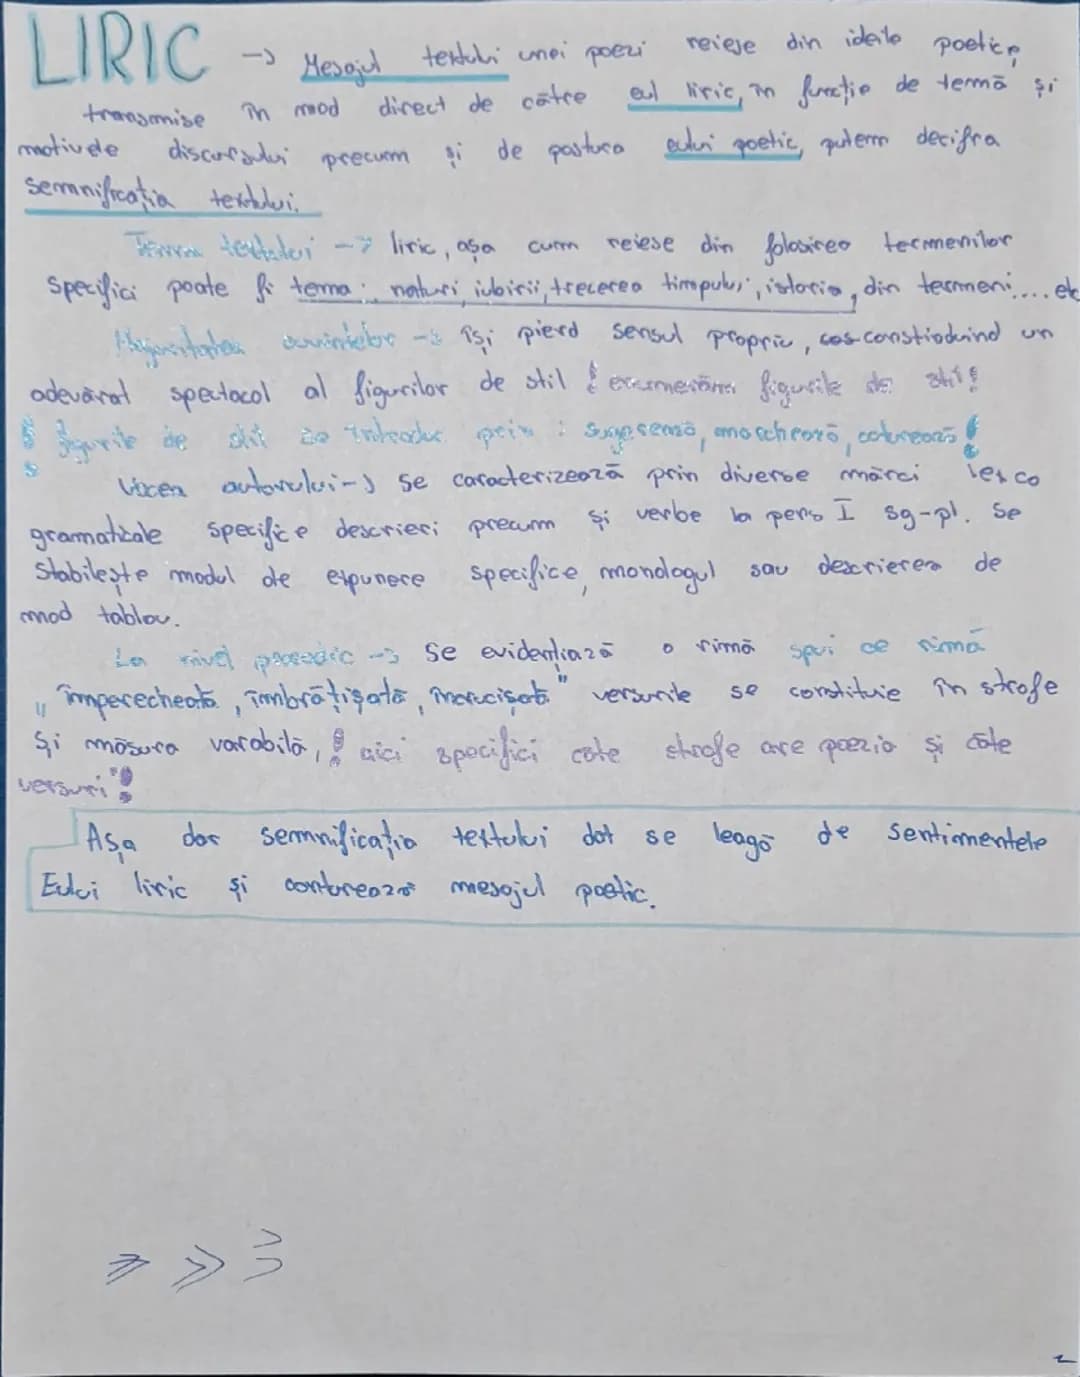 LIRIC -> Mesajul textului unei poezi reiese din ideile poetice,
transmise în mod direct de către eul liric, în funcție de temă și
motivele discursului precum și de postura eului poetic, putem decifra
semnificația textului.
Tema textului -> liric, așa cum reiese din folosirea termenilor
specifici poate fi tema: naturi, iubirii, trecerea timpului, istoria, din termeni.... etc
Majoritatea cuvintelor -> își pierd sensul propriu, constioduind un
adevărat spectacol al figurilor de stil ! enumerăm figurile de stil!
! figurile de stil se introduc prin: sugerează, marchează, conturează!
Vocea autorului -> se caracterizează prin diverse mărci lexco
gramaticale specifice descrieri precum și verbe la pers I sg-pl. Se
Stabilește modul de expunere specifice, monologul sau descrierea de
mod tablou.
La nivel prozodic -> se evidențiază o rimă spui ce rimă
„împerecheată, îmbrățișată, încrucișată" versurile se constituie în strofe
și măsura varabilă, ! aici specifici câte strofe are poezia și câte
versuri"!
Așa dar semnificația textului dat se leagă de sentimentele
Eului liric și conturează mesajul poetic.